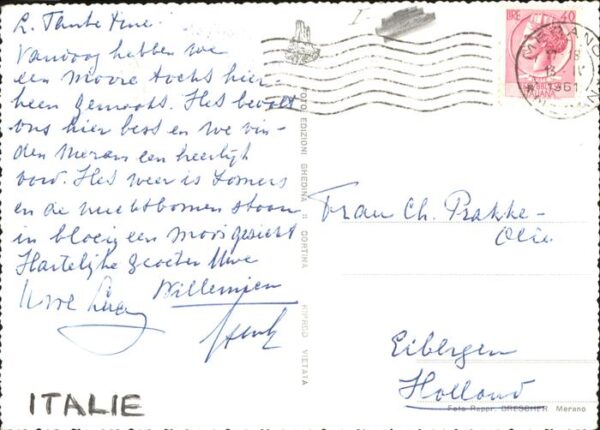 L. Tante Mne.
Vandaag hebben we
een mooie tocht hier
heen gemaakt. Het bevalt
ons hier best en we vin-
den Meran een heerlijk
oord. Het weer is zomers
en de vruchtbomen staan
in bloei, een mooi gezicht
Hartelijke groeten Uwe
Willemien
Uwe
Henk
ITALIE
LIRE 40
MERANO
1961
FOTO EDIZIONI GHEDINA CORTINA
RIPROD VIETATA
Frau Ch. Prakke-
Olie.
Eibergen
Holland
Foto Reppr. DRESCHER Merano